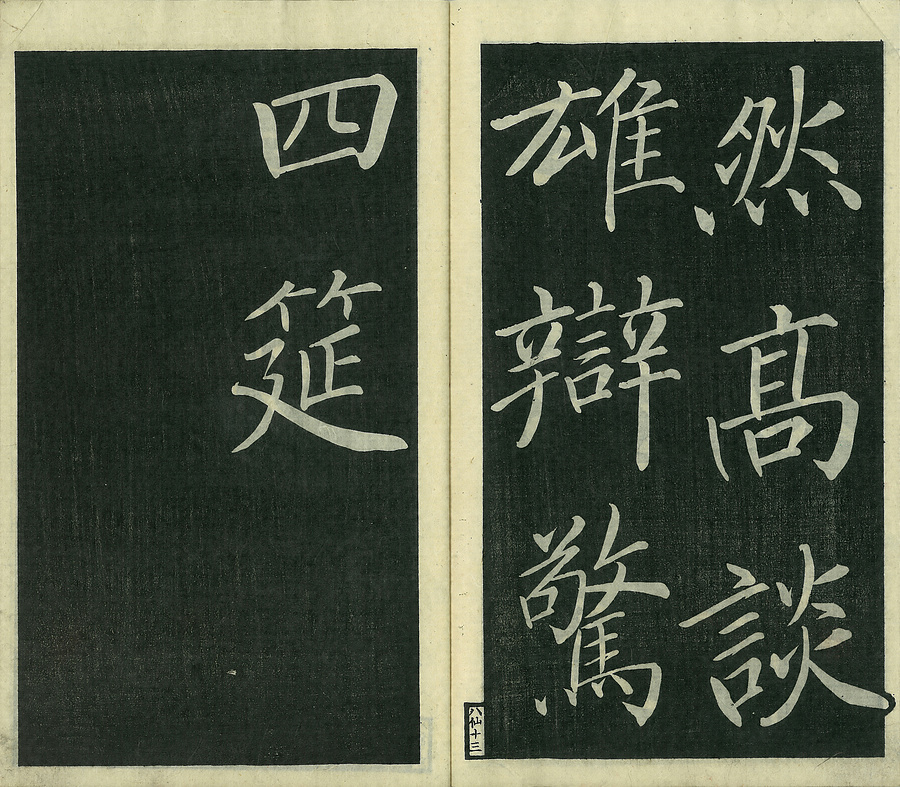 然髙談
雄辯驚
四筵
八仙十三